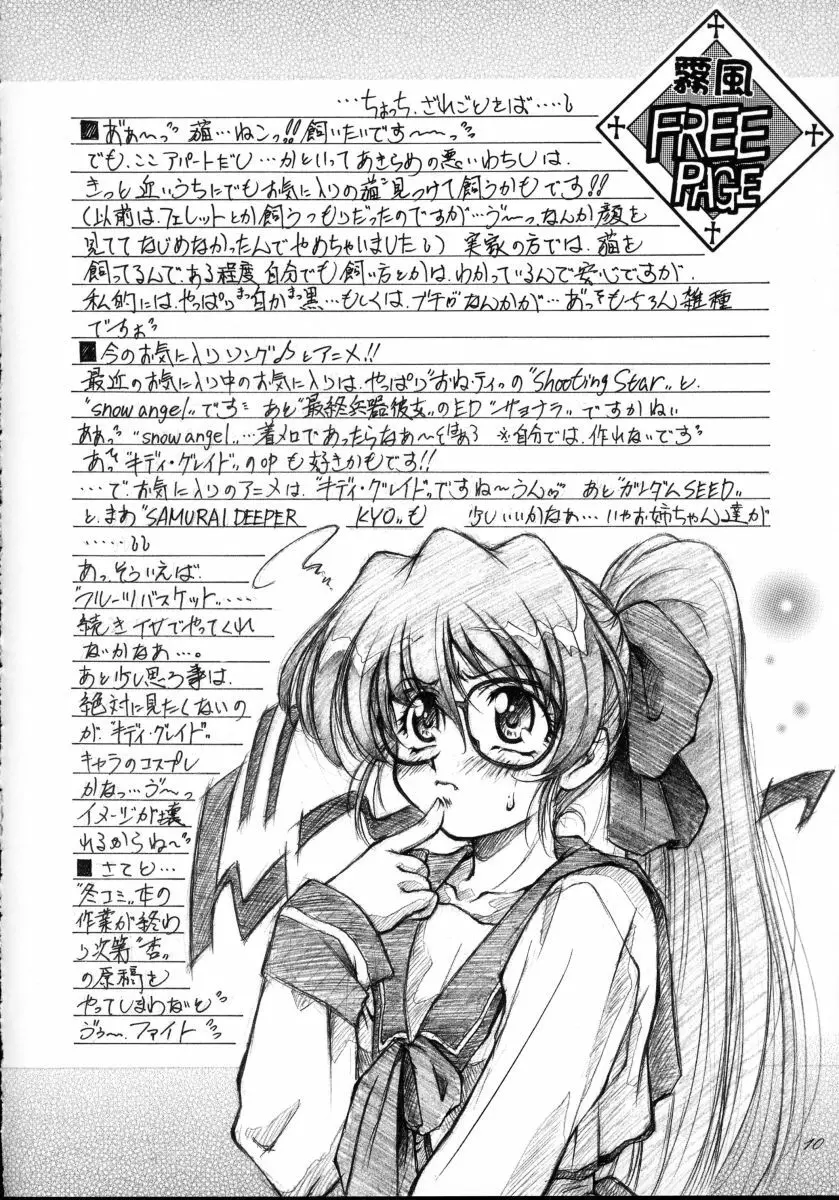 霧風
FREE
PAGE
…ちょっち、ざれごとをば……
■おぁ〜っ 猫…ねこっ!!飼いたいです〜〜っ
でも、ここアパートだし…かといってあきらめの悪いわちしは、
きっと近いうちにでもお気に入りの猫見つけて飼うかもです!!
(以前は、フェレットとか飼うつもりだったのですが…ゔ〜っなんか顔を
見ててなじめなかったんでやめちゃいました) 実家の方では、猫を
飼ってるんで、ある程度自分でも飼い方とかは、わかっているんで安心ですが、
私的には、やっぱりまっ白かまっ黒…もしくは、ブチなんかが…あっもちろん雑種
でーすぉ
■今のお気に入りソング♪とアニメ!!
最近のお気に入り中のお気に入りは、やっぱり“おね・ティ”の“Shooting Star”と、
“snow angel”です あと“最終兵器彼女”のED“サヨナラ”ですかねぃ
ああっ“snow angel”…着メロであったらなぁ〜 ※自分では、作れないです
あっ“キディ・グレイド”の中も好きかもです!!
…で、お気に入りのアニメは、“キディ・グレイド”ですね〜うん あと“ガンダムSEED”
と、まあ“SAMURAI DEEPER KYO”も 少しいいかなぁ…いやお姉ちゃん達が
……
あっ、そういえば、
“フルーツバスケット”……
続きTVでやってくれ
ないかなぁ…。
あと少し思う事は、
絶対に見たくないの
が、“キディ・グレイド”
キャラのコスプレ
かなっ…ゔ〜っ
イメージが壊
れるからね〜
■さてと…
“冬コミ”本の
作業が終わ
り次第“杏”
の原稿を
やってしまわないと
ゔぅ〜、ファイト
10